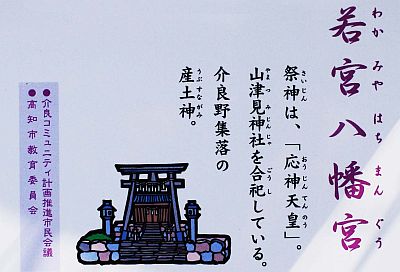 若宮八幡宮
わかみやはちまんぐう
祭神は、「応神天皇」。
さいじん
おうじんてんのう
山津見神社を合祀している。
やまつみじんじゃ
ごうし
介良野集落の
産土神。
うぶすながみ
●介良コミュニティ計画推進市民会議
●高知市教育委員会